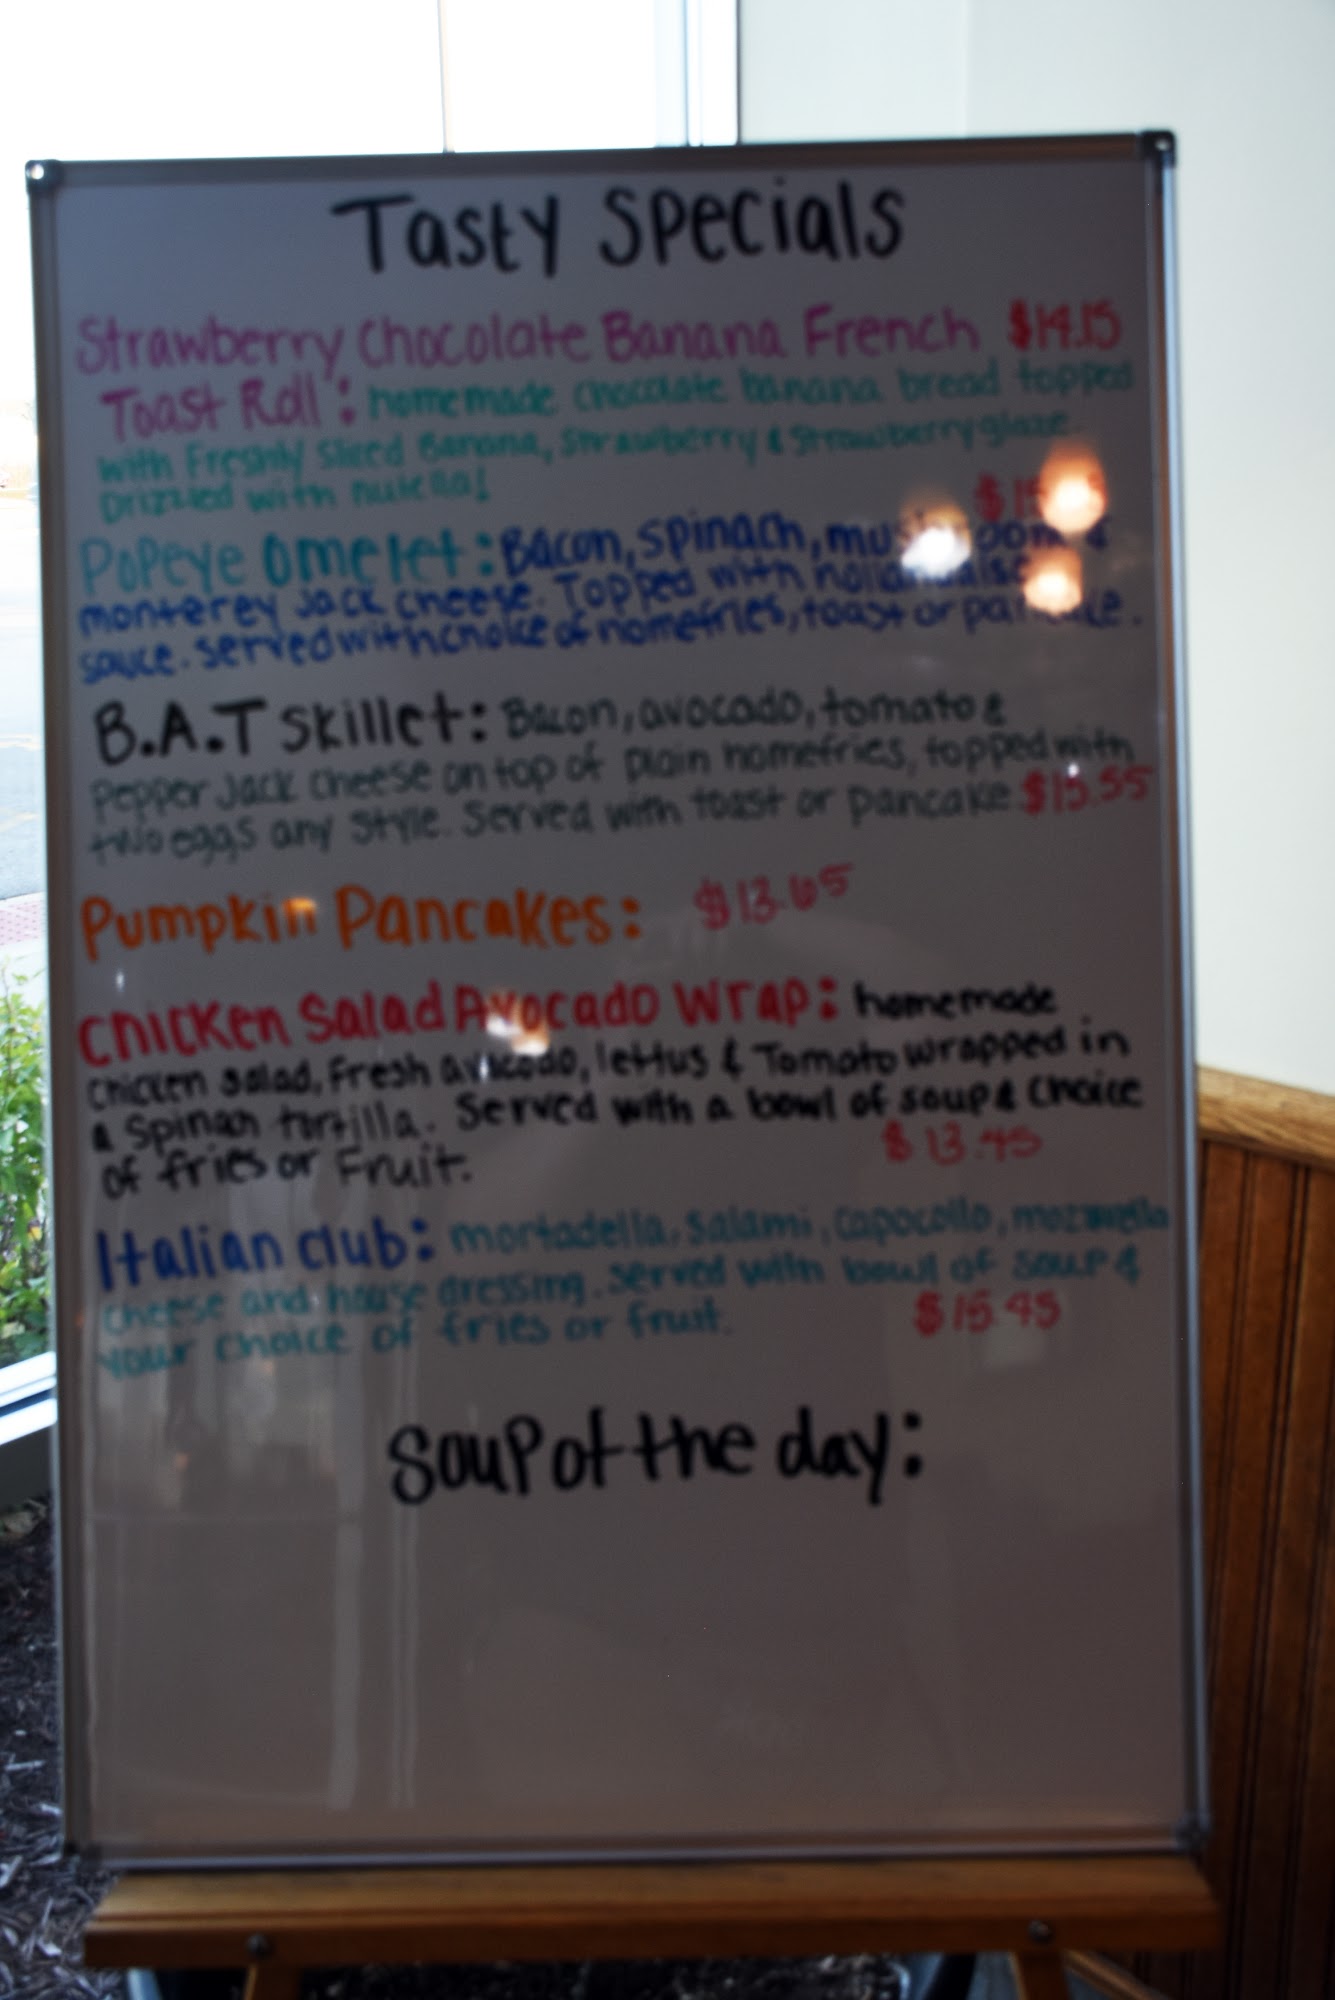 Tasty Specials
Strawberry Chocolate Banana French $14.15
Toast Roll: homemade chocolate banana bread topped
with Freshly Sliced Banana, Strawberry & Strawberry glaze.
Drizzled with nutella!
Popeye omelet: Bacon, spinach,
monterey Jack cheese. Topped with
sauce. served with choice of homefries, toast or pancake.
B.A.T Skillet: Bacon, avocado, tomato &
Pepper Jack cheese on top of plain homefries, topped with
two eggs any style. Served with toast or pancake.
Pumpkin Pancakes: $13.65
Chicken Salad Avocado Wrap: homemade
chicken salad, Fresh avocado, lettus & Tomato wrapped in
a Spinah tortilla. Served with a bowl of soup & choice
of fries or Fruit. $13.45
Italian club: mortadella, salami, capocollo,
cheese and house dressing. served with bowl of soup &
your choice of fries or fruit. $15.45
Soup of the day: